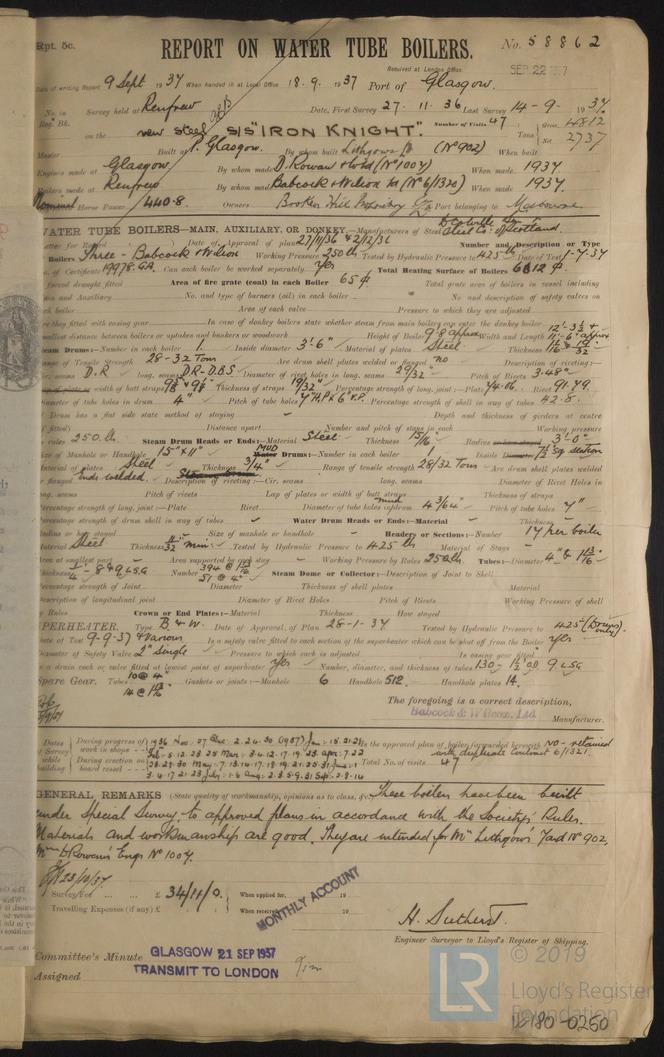 Rpt. 5c.
REPORT ON WATER TUBE BOILERS.
No. 58862
Received at London Office SEP 22 1937
Date of writing Report 9 Sept 1937 When handed in at Local Office 18.9.1937 Port of Glasgow.
No. in Survey held at Renfrew Date, First Survey 27.11.36 Last Survey 14-9-1937
Reg. Bk. Number of Visits 47 Gross 4812
on the new steel S/S "IRON KNIGHT". Tons Net 2737
Master Built at P. Glasgow. By whom built Lithgows (No 902) When built
Engines made at Glasgow By whom made D. Rowan & Co Ltd (No 1004) When made 1937
Boilers made at Renfrew By whom made Babcock & Wilcox Ltd (No 6/1320) When made 1937.
Nominal Horse Power 440.8 Owners Broken Hill Proprietary Port belonging to Melbourne
WATER TUBE BOILERS—MAIN, AUXILIARY, OR DONKEY.—Manufacturers of Steel D. Colville Steel Co: of Scotland.
Letter for Record Date of Approval of plan 27/11/36 & 2/12/36 Number and Description or Type
Boilers Three - Babcock & Wilcox Working Pressure 250 lb Tested by Hydraulic Pressure to 425 lb Date of Test 1-7-37
No. of Certificate 19978. GA. Can each boiler be worked separately Yes Total Heating Surface of Boilers 6612
forced draught fitted Area of fire grate (coal) in each Boiler 65 Total grate area of boilers in vessel including
Main and Auxiliary No. and type of burners (oil) in each boiler No. and description of safety valves on
each boiler Area of each valve Pressure to which they are adjusted
are they fitted with easing gear In case of donkey boilers state whether steam from main boilers can enter the donkey boiler
smallest distance between boilers or uptakes and bunkers or woodwork Height of Boiler 9'-8 approx Width and Length 12'-3½ & 11'-6" approx
Steam Drums:—Number in each boiler 1 Inside diameter 3'-6" Material of plates Steel Thickness
Range of Tensile Strength 28-32 Tons Are drum shell plates welded or flanged no Description of riveting:—
Cir. seams D.R long. seams DR-D.B.S Diameter of rivet holes in long. seams 29/32" Pitch of Rivets 3.48"
width of butt straps Thickness of straps 19/32" Percentage strength of long. joint:—Plate 74.06 Rivet 91.79
Diameter of tube holes in drum 4" Pitch of tube holes Percentage strength of shell in way of tubes 42.8.
Drum has a flat side state method of staying Depth and thickness of girders at centre
(if fitted) Distance apart Number and pitch of stays in each Working pressure
by rules 250 lb. Steam Drum Heads or Ends:—Material Steel Thickness 15/16" Radius 3'-0"
Size of Manhole or Handhole 15" x 11" MUD Drums:—Number in each boiler 1 Inside Diameter 7½" sq section
Material of plates Steel Thickness 3/4" Range of tensile strength 28/32 Tons Are drum shell plates welded
or flanged Ends welded. Description of riveting:—Cir. seams long. seams Diameter of Rivet Holes in
long. seams Pitch of rivets Lap of plates or width of butt straps Thickness of straps
Percentage strength of long. joint:—Plate Rivet Diameter of tube holes in mud drum 4 3/64" Pitch of tube holes 7"
Percentage strength of drum shell in way of tubes Water Drum Heads or Ends:—Material Thickness
Radius or how stayed Size of manhole or handhole Headers or Sections:—Number 14 per boiler
Material Steel Thickness 11/32 min: Tested by Hydraulic Pressure to 425 lb Material of Stays
Area at smallest part Area supported by each stay Working Pressure by Rules 250 lb. Tubes:—Diameter 4" & 1 13/16"
Thickness 8 & 9 L.S.G Number 394 @ 1 13/16 51 @ 4" Steam Dome or Collector:—Description of Joint to Shell
Percentage strength of Joint Diameter Thickness of shell plates Material
Description of longitudinal joint Diameter of Rivet Holes Pitch of Rivets Working Pressure of shell
by Rules Crown or End Plates:—Material Thickness How stayed
SUPERHEATER. Type B & W. Date of Approval of Plan 28-1-37 Tested by Hydraulic Pressure to 425 (Drums only).
Date of Test 9-9-37 & Various Is a safety valve fitted to each section of the superheater which can be shut off from the Boiler Yes
Diameter of Safety Valve 2" Single Pressure to which each is adjusted Is easing gear fitted
Is a drain cock or valve fitted at lowest point of superheater Yes Number, diameter, and thickness of tubes 130 - 1½ OD 9 LSG
Spare Gear. Tubes 10 @ 4" 14 @ 1 13/16" Gaskets or joints:—Manhole 6 Handhole 512. Handhole plates 14.
The foregoing is a correct description,
Babcock & Wilcox, Ltd
Manufacturer.
Dates of Survey while building
During progress of work in shops
During erection on board vessel
Is the approved plan of boiler forwarded herewith NO - retained with duplicate contract 6/1321.
Total No. of visits 47
GENERAL REMARKS (State quality of workmanship, opinions as to class, &c.) These boilers have been built
under Special Survey, to approved plans in accordance with the Society's Rules.
Materials and workmanship are good. They are intended for Mr Lithgows' Yard No 902,
Mr D Rowan's Engs No 1004.
23/10/37
Survey Fee £ 34/11/0. When applied for, 19
Travelling Expenses (if any) £ When received, 19
MONTHLY ACCOUNT
H. Sutherst.
Engineer Surveyor to Lloyd's Register of Shipping.
Committee's Minute GLASGOW 21 SEP 1937
Assigned TRANSMIT TO LONDON
LR © 2019
Lloyd's Register
Foundation
W180-0250